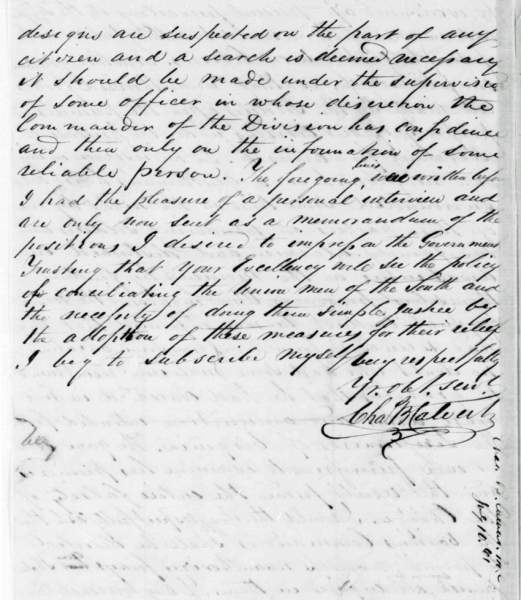 designs are suspected on the part of any
citizen and a search is deemed necessary
it should be made under the supervision
of some officer in whose discretion the
Commander of the Division has confidence
and then only on the information of some
reliable person. The foregoing lines were written before
I had the pleasure of a personal interview and
are only now sent as a memorandum of the
positions I desired to impress on the Government
Trusting that your Excellency will see the policy
of conciliating the Union men of the South and
the necessity of doing them simple justice by
the adoption of these measures for their relief
I beg to subscribe myself very respectfully
Yr. Obt. Servt
Chas B Calvert
Chas. B. Calvert. M.C.